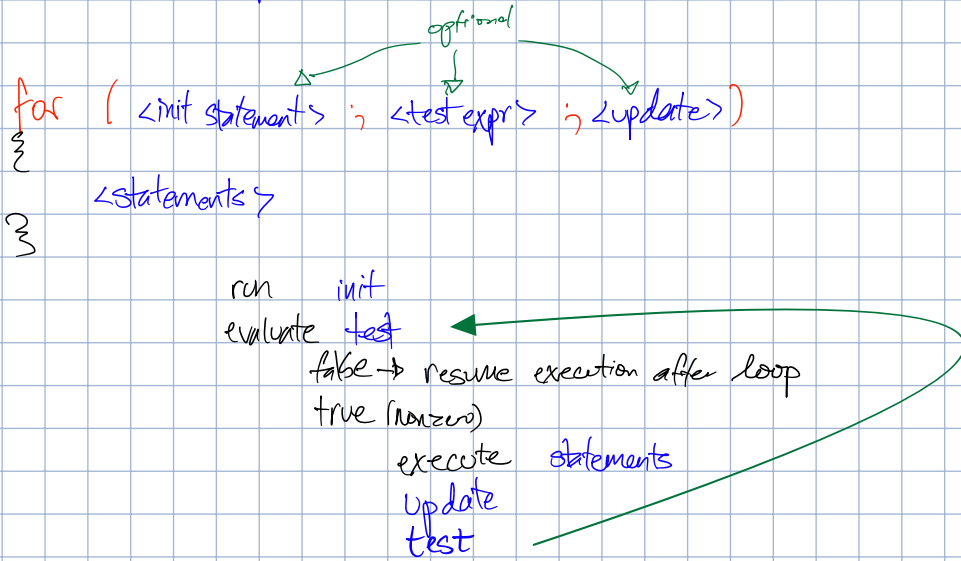 optional
for ( <init statement> ; <test expr> ; <update>)
{
<statements>
}
run init
evaluate test
false → resume execution after loop
true (nonzero)
execute statements
update
test